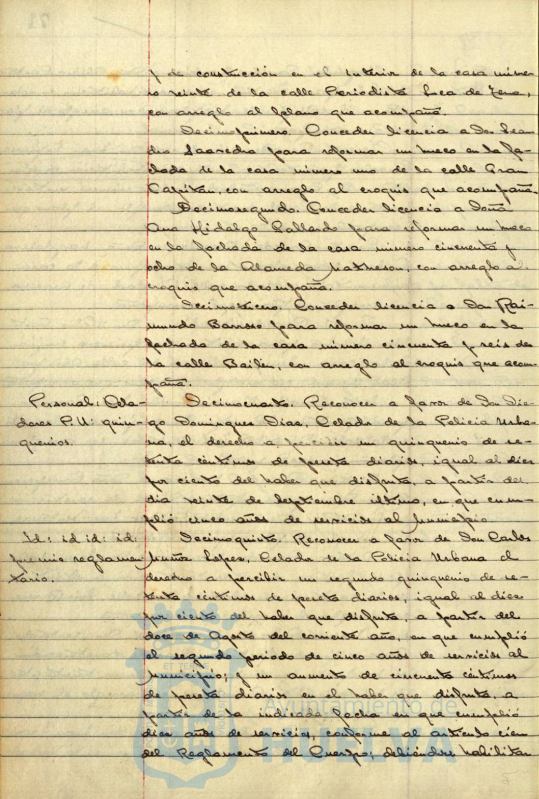 71
y de construcción en el interior de la casa núme-
ro veinte de la calle Periodista Luca de Tena,
con arreglo al plano que acompaña.
Decimoprimero. Conceder licencia a Don Lean-
dro Saavedra para reformar un hueco en la fa-
chada de la casa número uno de la calle Gran
Capitán, con arreglo al croquis que acompaña.
Decimosegundo. Conceder licencia a Doña
Ana Hidalgo Gallardo para reformar un hueco
en la fachada de la casa número cincuenta y
ocho de la Alameda Matheson, con arreglo a
croquis que acompaña.
Decimotercero. Conceder licencia a Don Rai-
mundo Barroso para reformar un hueco en la
fachada de la casa número cincuenta y seis de
la calle Bailén, con arreglo al croquis que acom-
paña.
Personal: Cela-
dores P.U: quin-
quenios.
Decimocuarto. Reconocer a favor de Don Die-
go Dominguez Diaz, Celador de la Policia Urba-
na, el derecho a percibir un quinquenio de se-
tenta céntimos de peseta diarios, igual al diez
por ciento del haber que disfruta, a partir del
dia veinte de Septiembre último, en que cum-
plió cinco años de servicios al Municipio.
Id: id id: id:
premio reglamen-
tario.
Decimoquinto. Reconocer a favor de Don Carlos
Muñoz Lopez, Celador de la Policia Urbana el
derecho a percibir un segundo quinquenio de se-
tenta céntimos de peseta diarios, igual al diez
por ciento del haber que disfruta, a partir del
doce de Agosto del corriente año, en que cumplió
el segundo periodo de cinco años de servicios al
Municipio; y un aumento de cincuenta céntimos
de peseta diarios en el haber que disfruta, a
partir de la indicada fecha en que cumplió
diez años de servicios, conforme al articulo cien
del Reglamento del Cuerpo; debiéndose habilitar
Ayuntamiento de
HUELVA